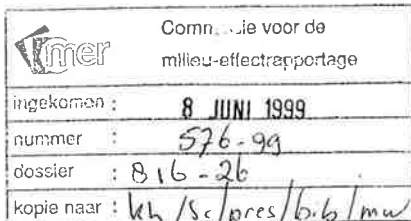 mer
voor de
milieu-effectrapportage
ingekomen : 8 JUNI 1999
nummer : 576-99
dossier : 816-26
kopie naar : kh/Sc/pres/bib/mw